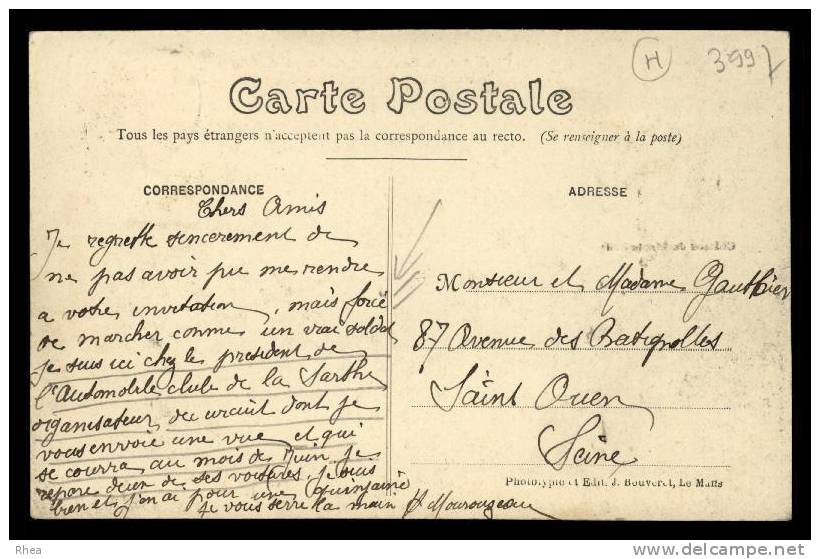 H
3997
Carte Postale
Tous les pays étrangers n'acceptent pas la correspondance au recto. (Se renseigner à la poste)
CORRESPONDANCE
Chers Amis
Je regrette sincerement de
ne pas avoir pu me rendre
a votre invitation, mais forcé
de marcher comme un vrai soldat
je suis ici chez le president de
l'Automobile club de la Sarthe
organisateur du circuit dont je
vous envoie une vue et qui
se courra au mois de Juin, je
repare deux de ses voitures, je suis
bien et j'en ai pour une quinzaine
je vous serre la main
Mourouzeau
ADRESSE
Monsieur et Madame Gauthier
87 Avenue des Batignolles
Saint Ouen
Seine
Phototypie et Edit. J. Bouveret, Le Mans
Rhea
delcampe.net